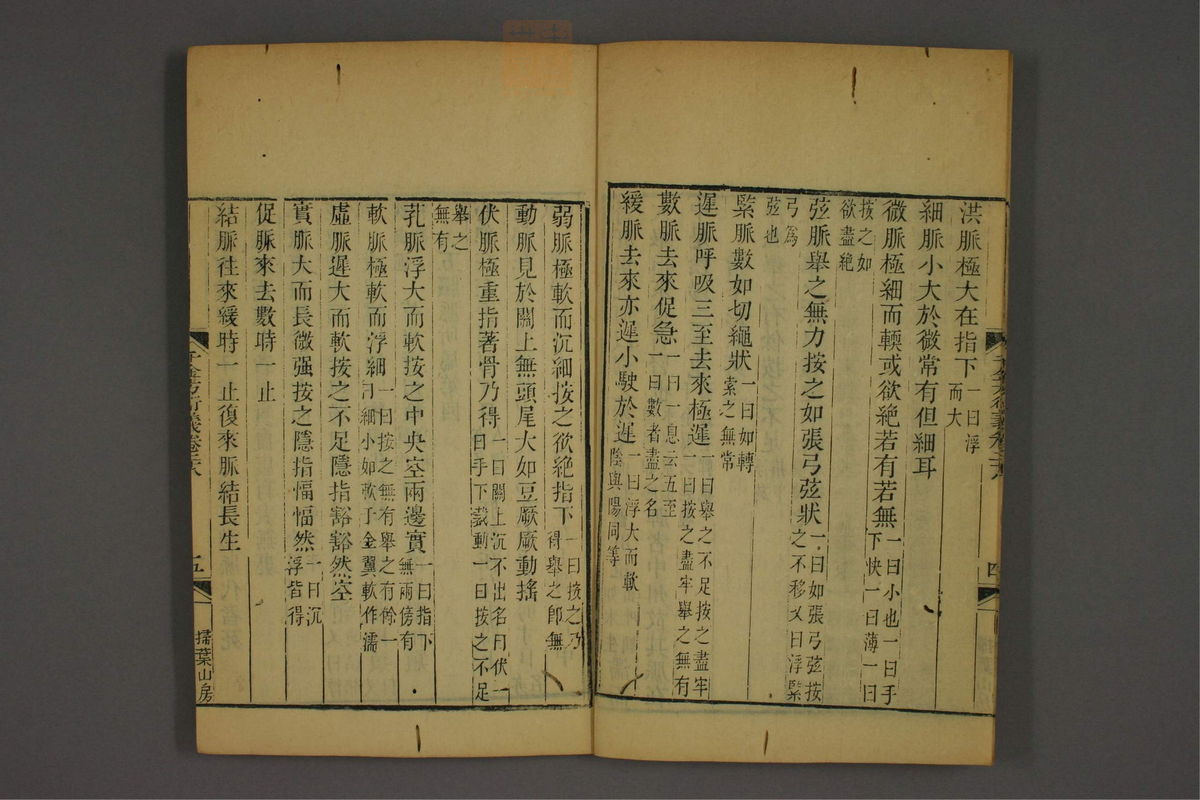 洪脈極大在指下一曰浮而大
細脈小大於微常有但細耳
微脈極細而輭或欲絶若有若無一曰小也一曰手下快一曰薄一曰
按之如欲盡絶
弦脈舉之無力按之如張弓弦狀一曰如張弓弦按之不移又曰浮緊
弓爲弦也
緊脈數如切繩狀一曰如轉索之無常
遲脈呼吸三至去來極遲一曰舉之不足按之盡牢一曰按之盡牢舉之無有
數脈去來促急一曰一息云五至一曰數者盡之名
緩脈去來亦遲小駛於遲一曰浮大而軟陰與陽同等
四
弱脈極軟而沉細按之欲絶指下一曰按之乃得舉之卽無
動脈見於關上無頭尾大如豆厥厥動搖
伏脈極重指著骨乃得一曰關上沉不出名曰伏一曰手下裁動一曰按之不足
舉之無有
芤脈浮大而軟按之中央空兩邊實一曰指下無兩傍有
軟脈極軟而浮細一曰按之無有舉之有餘一曰細小如軟于金翼軟作濡
虛脈遲大而軟按之不足隱指豁豁然空
實脈大而長微强按之隱指愊愊然一曰沉浮皆得
促脈來去數時一止
結脈往來緩時一止復來脈結長生
千金方衍義卷二十八
五
掃葉山房